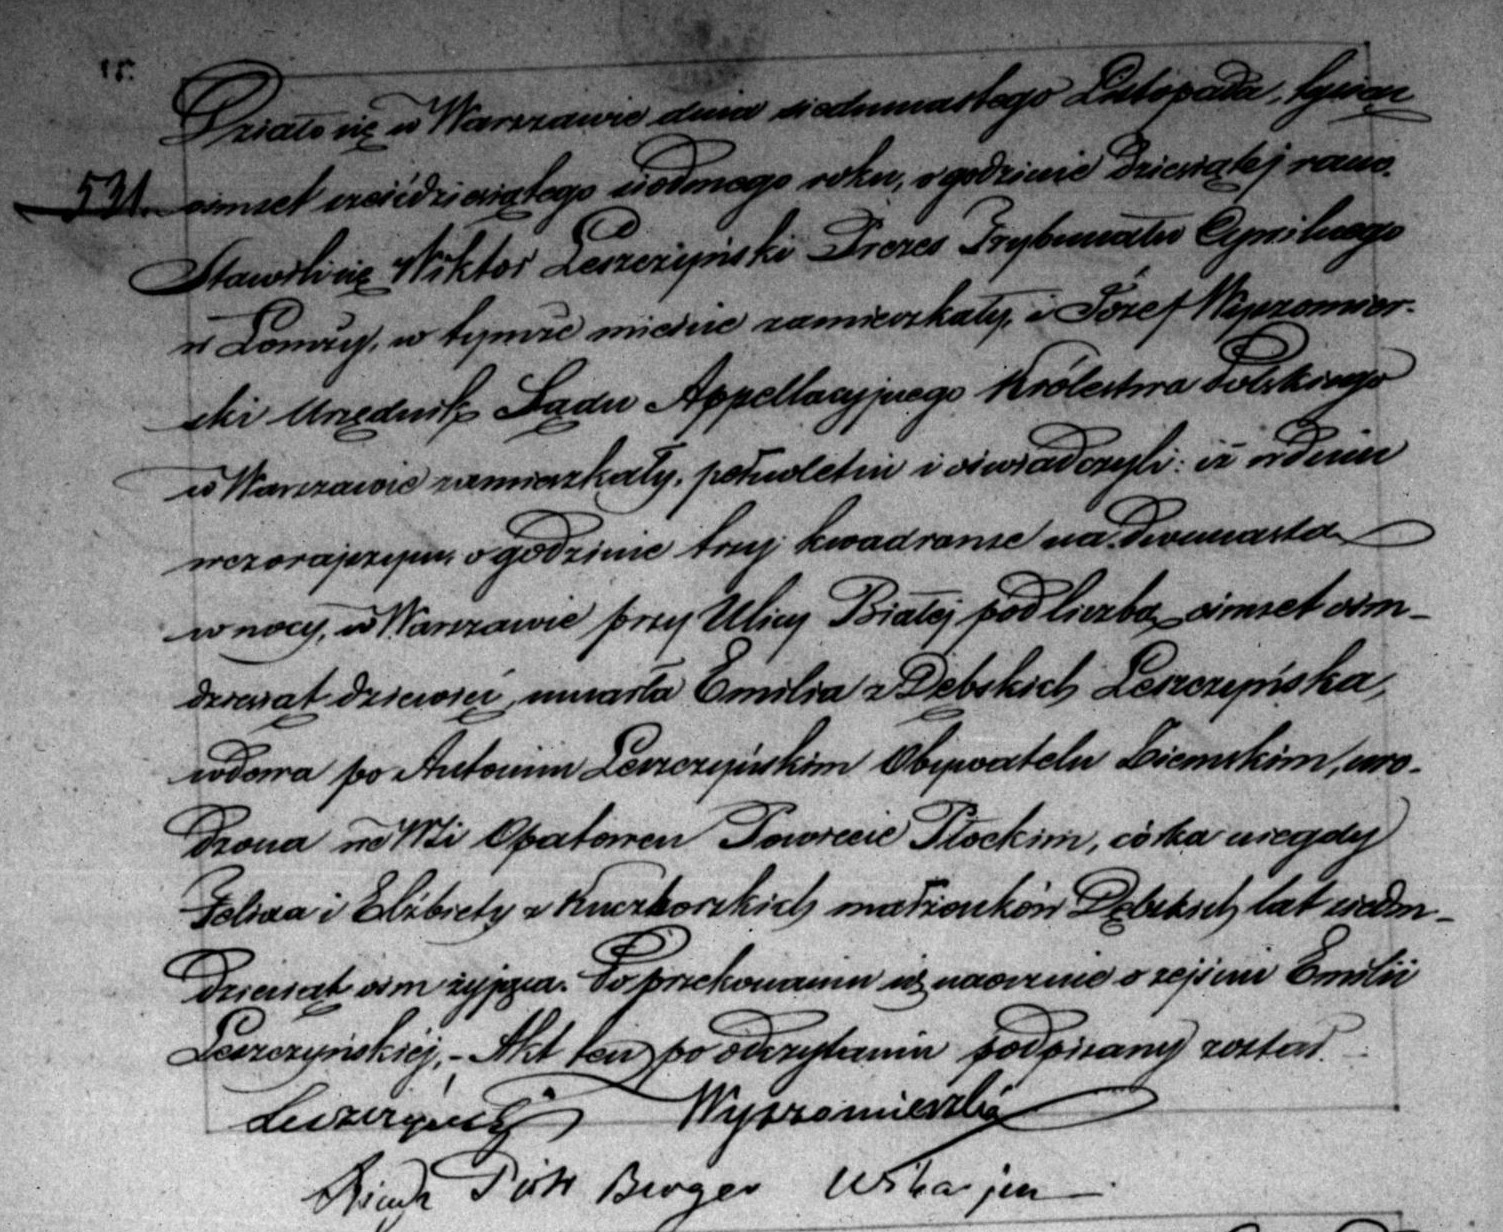 15.
Działo się w Warszawie dnia siedmnastego Listopada, tysiąc
531. osmset sześćdziesiątego siódmego roku, o godzinie dziesiątej rano.
Stawili się Wiktor Leszczyński Prezes Trybunału Cywilnego
w Łomży, w tymże mieście zamieszkały, i Józef Wyszomier-
ski Urzędnik Sądu Appellacyjnego Królestwa Polskiego
w Warszawie zamieszkały, pełnoletni i oświadczyli: iż w dniu
wczorajszym o godzinie trzy kwadranse na dwunastą
w nocy, w Warszawie przy Ulicy Białej pod liczbą osmset osm-
dziesiąt dziewięć, umarła Emilia z Dębskich Leszczyńska,
wdowa po Antonim Leszczyńskim Obywatelu Ziemskim, uro-
dzona we Wsi Powiecie Płockim, córka niegdy
Felixa i Elżbiety z Kuczborskich małżonków Dębskich, lat siedm-
dziesiąt osm żyjąca. Po przekonaniu się naocznie o zejściu Emilii
Leszczyńskiéj, - Akt ten po odczytaniu podpisany został. -
Leszczyński Wyszomierski
Piotr Berger Wikarjusz